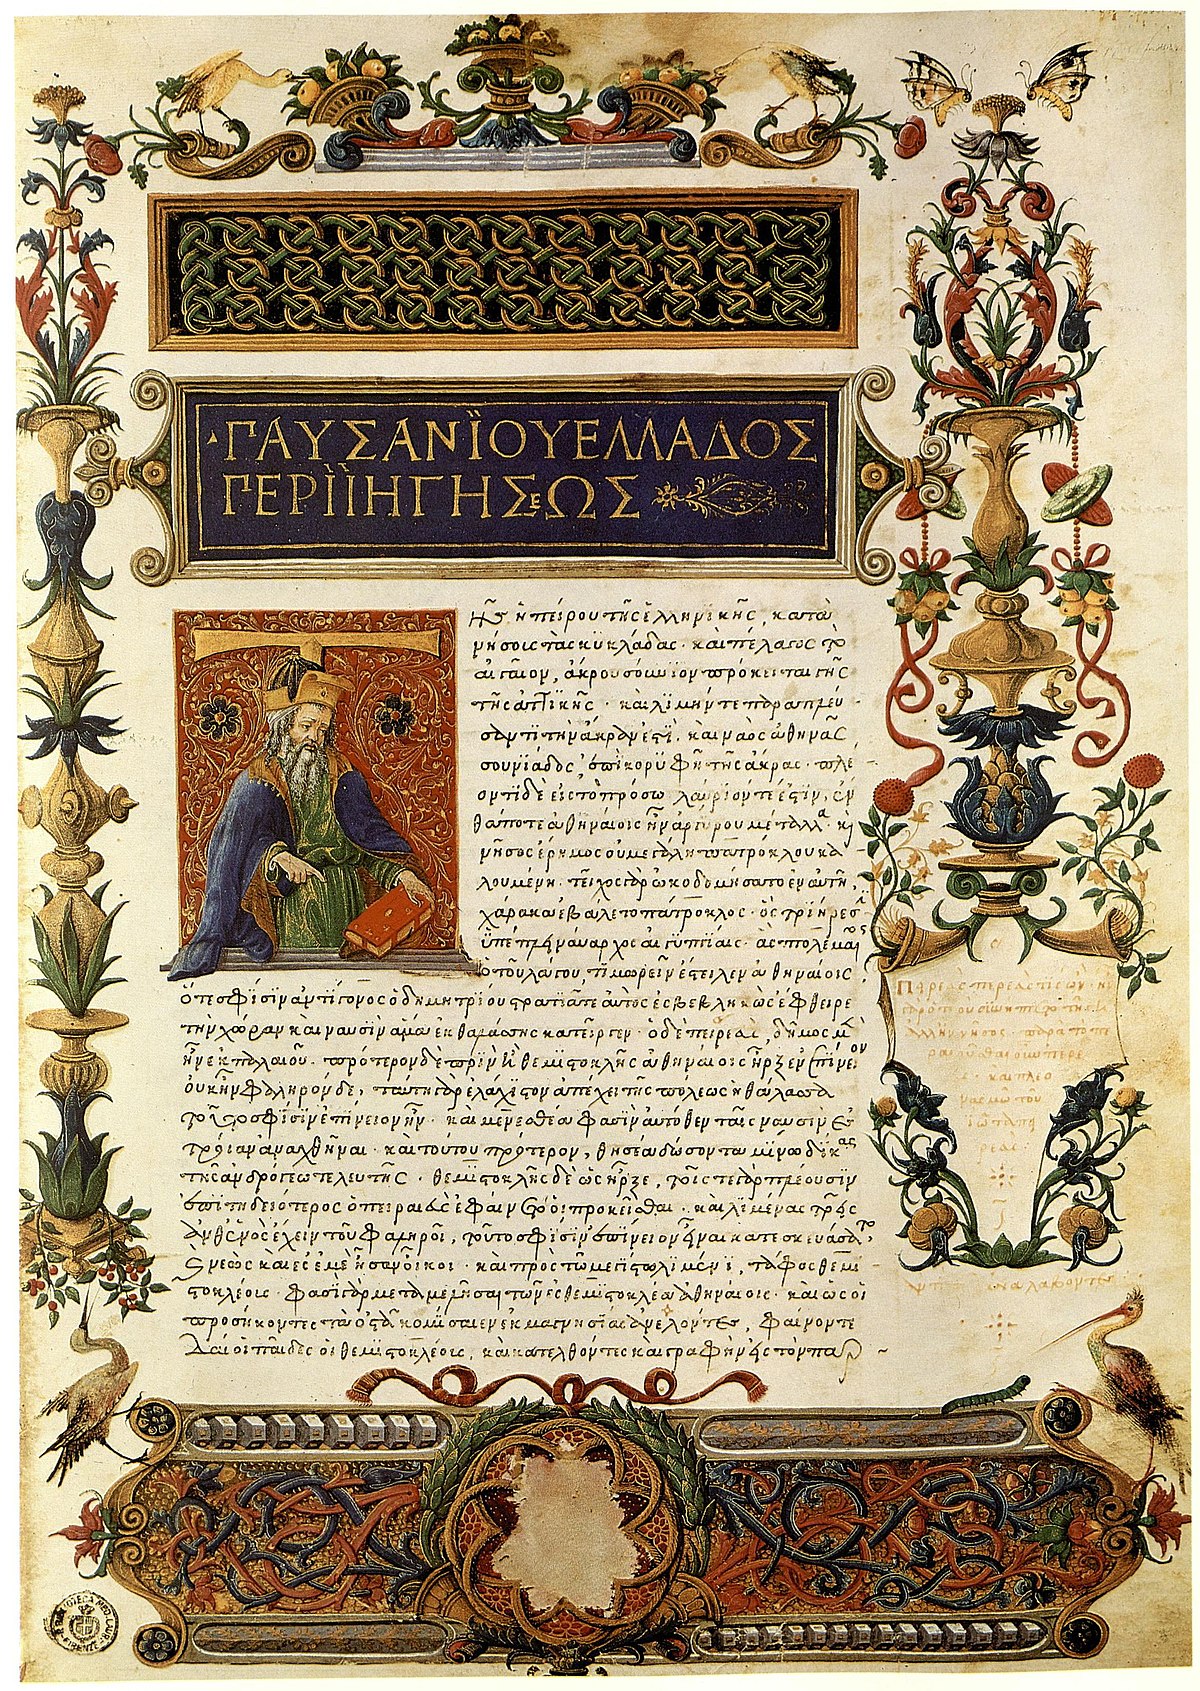 ·ΠΑΥΣΑΝΪΟΥ ΕΛΛΑΔΟΣ
ΠΕΡΙΗΓΗΣΕΩΣ
Τῆς ἠπείρου τῆς ἑλληνικῆς, κατὰ
νήσους τὰς κυκλάδας· καὶ πέλαγος τὸ
αἰγαῖον, ἄκρου σούνιον πρόκειται γῆς
τῆς ἀττικῆς· καὶ λιμήν τε παραπλεύ
σαντι τὴν ἄκραν ἐστί. καὶ ναὸς ἀθηνᾶς
σουνιάδος, ἐπὶ κορυφῇ τῆς ἄκρας· πλέ
οντι δὲ εἰς τὸ πρόσω λαύριόν τέ ἐστιν, ἔν
θα ποτε ἀθηναίοις ἦν ἀργύρου μέταλλα· καὶ
νῆσος ἔρημος οὐ μεγάλη πατρόκλου κα
λουμένη· τεῖχος γὰρ ὠκοδομήσατο ἐν αὐτῇ,
χάρακα ἐβάλετο πάτροκλος· ὃς τριήρεσ
ὑπέπλει ναύαρχος αἰγυπτίαις· ἃς πτολεμαῖος
ὁ τοῦ λάγου, τιμωρεῖν ἔστειλεν ἀθηναίοις,
ὅτε σφίσιν ἀντίγονος ὁ δημητρίου στρατιᾶ τε αὐτὸς ἐσβεβληκὼς ἔφθειρε
τὴν χώραν καὶ ναυσὶν ἅμα ἐκ θαλάσσης κατεῖργεν· ὁ δὲ πειραιεὺς, δῆμος μὲν
ἦν ἐκ παλαιοῦ· πρότερον δὲ πρὶν ἢ θεμιστοκλῆς ἀθηναίοις ἦρξεν ἐπίνειον
οὐκ ἦν φάληρον δέ, ταύτῃ γὰρ ἐλάχιστον ἀπέχει τῆς πόλεως ἡ θάλασσα
τοῦτο σφίσιν ἐπίνειον ἦν· καὶ μενεσθέα φασὶν αὐτόθεν ταῖς ναυσὶν ἐς
τροίαν ἀναχθῆναι· καὶ τούτου πρότερον, θησέα δώσοντα μίνω δίκας
τῆς ἀνδρόγεω τελευτῆς· θεμιστοκλῆς δὲ ὡς ἦρξε, τοῖς τε γὰρ πλέουσιν
ἐπιτηδειότερος ὁ πειραιεὺς ἐφαίνετό οἱ προκεῖσθαι· καὶ λιμένας τρεῖς
ἀνθ' ἑνὸς ἔχειν τοῦ φαληροῖ, τοῦτο σφίσιν ἐπίνειον εἶναι κατεσκευάσατο,
νεὼς καὶ ἐς ἐμὲ ἦσαν οἶκοι· καὶ πρὸς τῷ μεγίστῳ λιμένι, τάφος θεμι
στοκλέους· φασὶ γὰρ μεταμελῆσαι τῶν ἐς θεμιστοκλέα ἀθηναίοις· καὶ ὡς οἱ
προσήκοντες τὰ ὀστᾶ κομίσαιεν ἐκ μαγνησίας ἀνελόντες, φαίνονται
δὲ οἱ παῖδες οἱ θεμιστοκλέους, καὶ κατελθόντες καὶ γραφὴν ἐς τὸν παρ